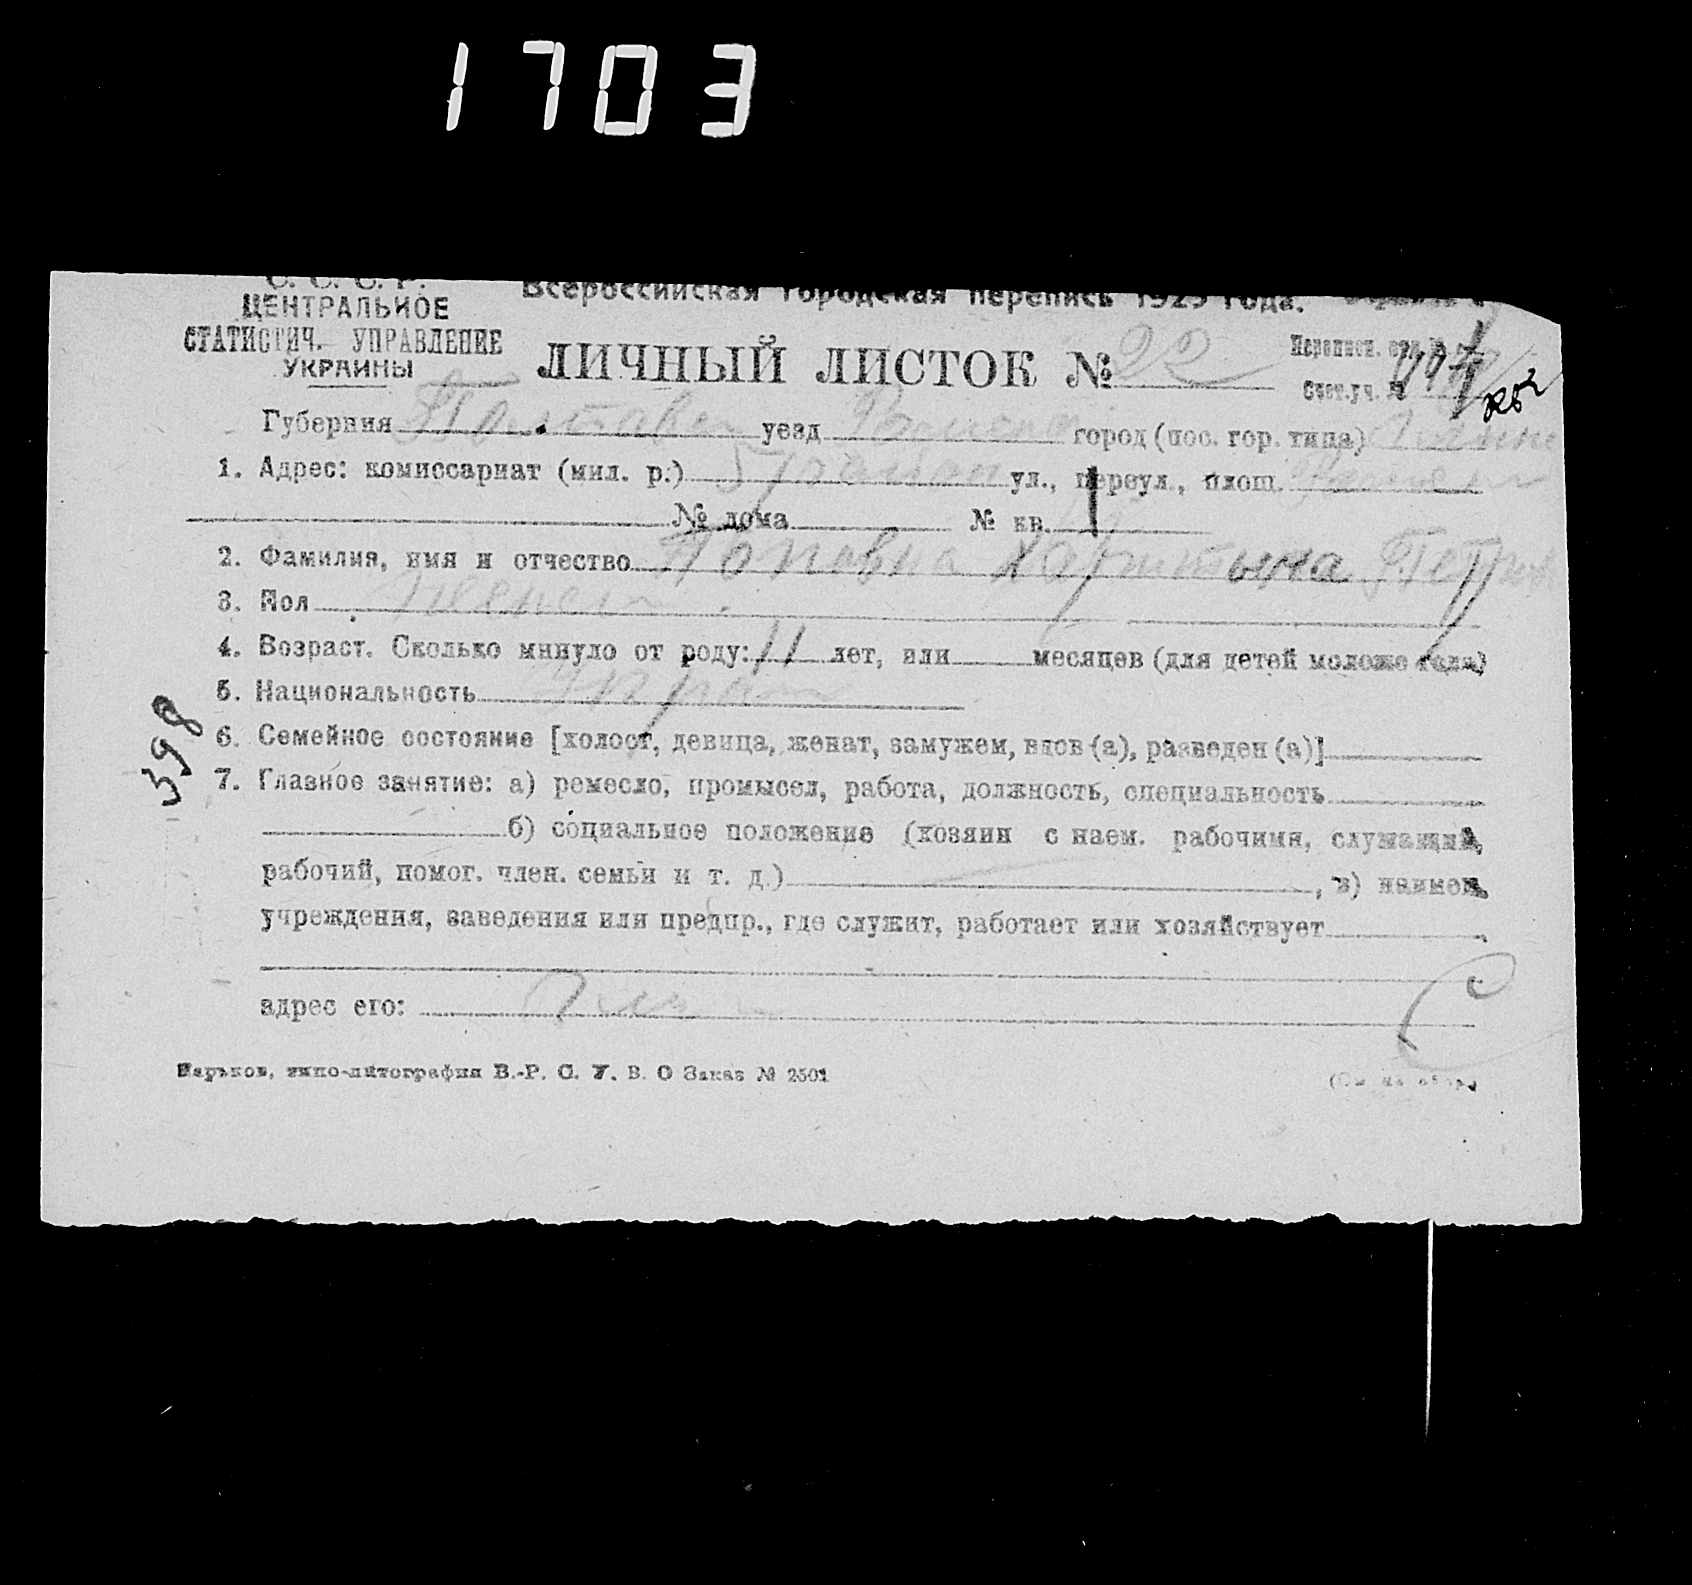 1703
С. С. С. Р. Всероссийская городская перепись 1923 года.
ЦЕНТРАЛЬНОЕ
СТАТИСТИЧ. УПРАВЛЕНИЕ
УКРАИНЫ
ЛИЧНЫЙ ЛИСТОК № 22
Переписн.
Счет. уч. №
Губерния Полтавск уезд город (пос. гор. типа)
1. Адрес: комиссариат (мил. р.) ул., переул., площ.
№ дома № кв.
2. Фамилия, имя и отчество Поповна Харитына Петров
3. Пол Женск
4. Возраст. Сколько минуло от роду: 11 лет, или месяцев (для детей моложе года)
5. Национальность Украин
398
6. Семейное состояние [холост, девица, женат, замужем, вдов (а), разведен (а)]
7. Главное занятие: а) ремесло, промысел, работа, должность, специальность
б) социальное положение (хозяин с наем. рабочими, служащий,
рабочий, помог. член. семьи и т. д.) , в) наимен.
учреждения, заведения или предпр., где служит, работает или хозяйствует
адрес его:
Харьков, типо-литография В.-Р. С. У. В. О Заказ № 2501
(См. на обор.)